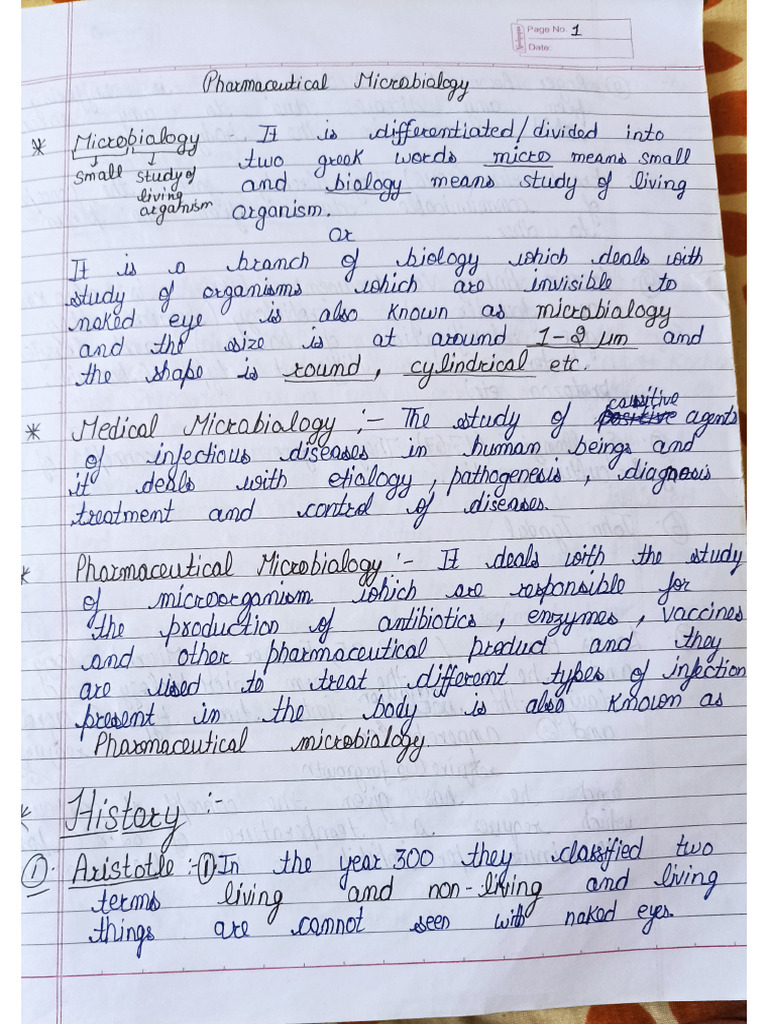 Page No. 1
Date:
Pharmaceutical Microbialogy
* Microbialogy - It is differentiated/divided into
small study of living organism
two greek words micro means small
and biology means study of living
organism.
or
It is a branch of biology which deals with
study of organisms which are invisible to
naked eye is also known as microbialogy
and the size is at around 1-2 μm and
the shape is round, cylindrical etc.
* Medical Microbialogy :- The study of causitive agents
of infectious diseases in human beings and
it deals with etialogy, pathogenesis, diagnosis
treatment and control of diseases.
* Pharmaceutical Microbialogy :- It deals with the study
of microorganism which are responsible for
the production of antibiotics, enzymes, vaccines
and other pharmaceutical product and they
are used to treat different types of infection
present in the body is also known as
Pharmaceutical microbialogy.
* History :-
① Aristotle :- ① In the year 300 they classified two
terms living and non-living and living
things are cannot seen with naked eyes.